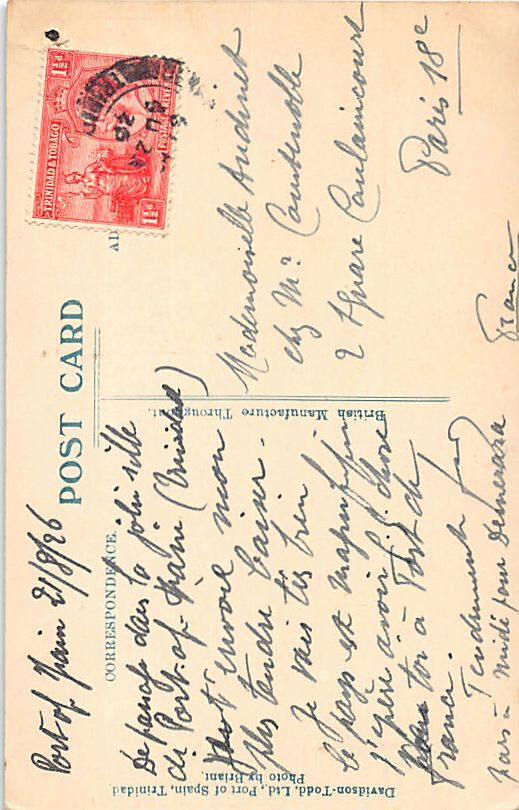 POST CARD
CORRESPONDENCE.
Port of Spain 21/8/26
De passage dans la jolie ville
de Port-of-Spain (Trinidad)
t'envoie mon
plus tendre baiser.
Je vais très bien
le pays est magnifique
j'espère avoir chose
toi à Fort de
France.
Tendrement
pars à midi pour Demerara
Mademoiselle Audinet
chez Mr
2 Square Caulaincourt
Paris 18e
France
TRINIDAD & TOBAGO
POSTAGE & REVENUE
1½d
1½d
AU 24
26
AD
British Manufacture Throughout.
Davidson-Todd, Ltd., Port of Spain, Trinidad.
Photo by Briant.